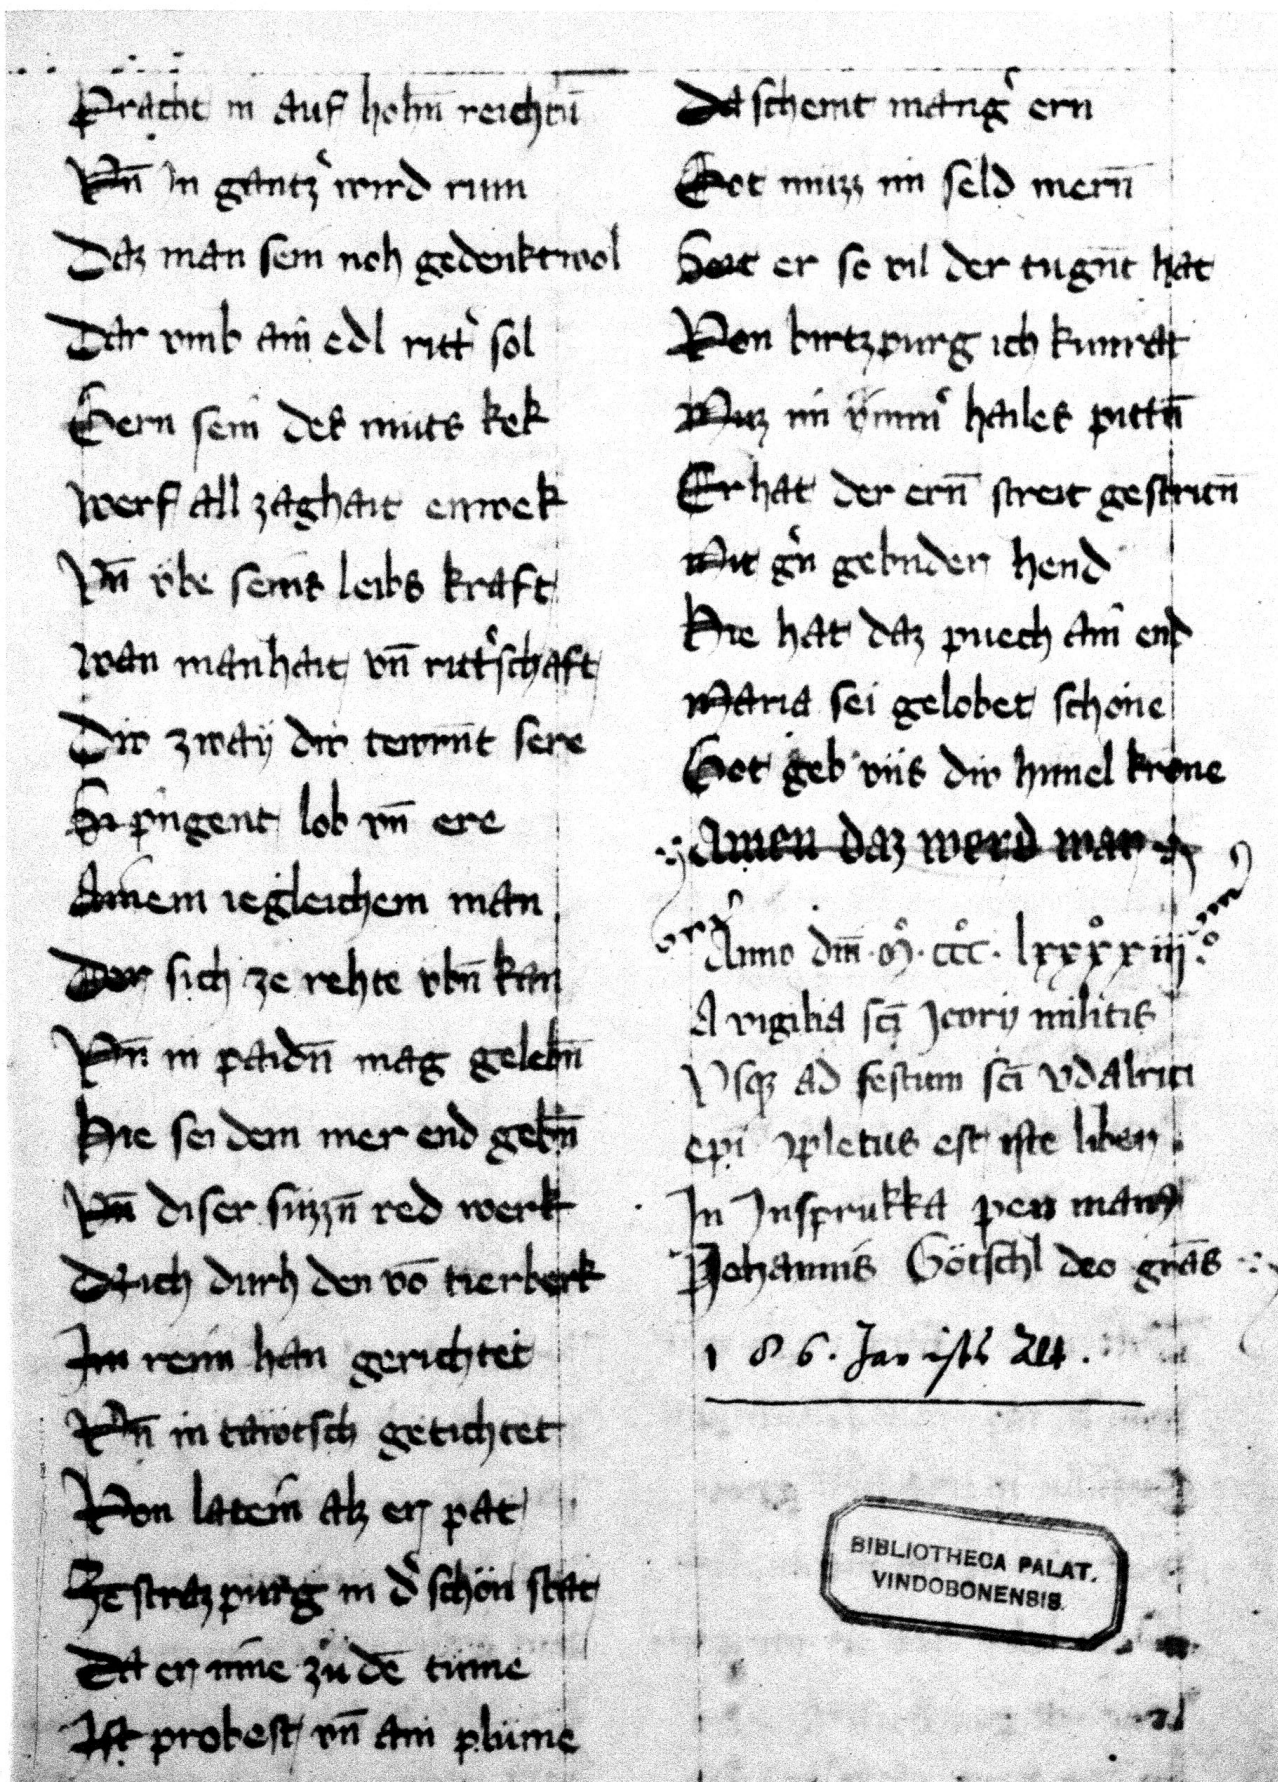 Pracht in auf hohñ reichtū
Vn̄ In gantzʾ wird rum
Daz man sein noh gedenkt wol
Dar vmb ain edl rittʾ sol
Gern sein des muts kek
Werf all zaghait enwek
Vn̄ vbe seins leibs kraft
wan manhait vn̄ rittʾschaft
Div zwaÿ dir tewrn̄t sere
Si pringent lob vn̄ ere
Ainem iegleichem man
Der sich ze rehte vbn̄ kan
Vn̄ in paidn̄ mag gelebn̄
Hie sei dem mer end gebn̄
Vn̄ diser suzzn̄ red werk
Daz ich durh den vō tierberk
Im reim han gerichtet
Vn̄ in tawtsch getichtet
Von latein alz er pat
Ze strazpurg in dʾ schön stat
Da er inne zů dē tůme
Ist probest vn̄ ain plůme
Da scheint mangʾ ern
Got muzz im seld mern̄
Seit er so vil der tugn̄t hat
Von wirtzpurg ich kunrat
Muz im ÿmmʾ hailes pittn̄
Er hat der ern̄ streit gestritn̄
Mit gʾn gebnder hend
Hie hat daz puech ain end
Maria sei gelobet schone
Got geb vns div himel krone
Amen daz werd war
Anno dm̄ .mº. cccº. lxxxxiijº.
A vigilia scī Jeorij militis
Vsqz ad festum scī Vdalrici
epī ꝯpletus est iste liber
In Insprukka per manꝰ
Johannis Götschl deo grās
186. Jar ists Alt.
BIBLIOTHECA PALAT.
VINDOBONENSIS.